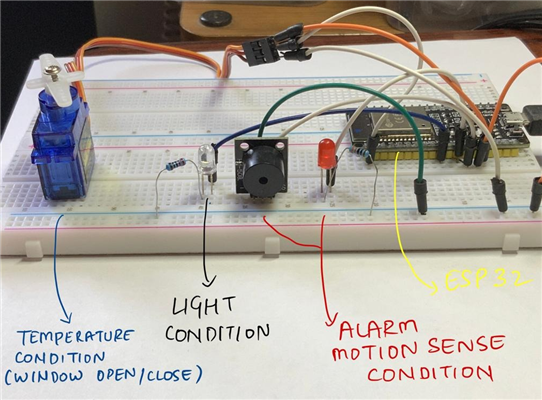 ESP32
LIGHT
CONDITION
TEMPERATURE
CONDITION
(WINDOW OPEN/CLOSE)
ALARM
MOTION SENSE
CONDITION